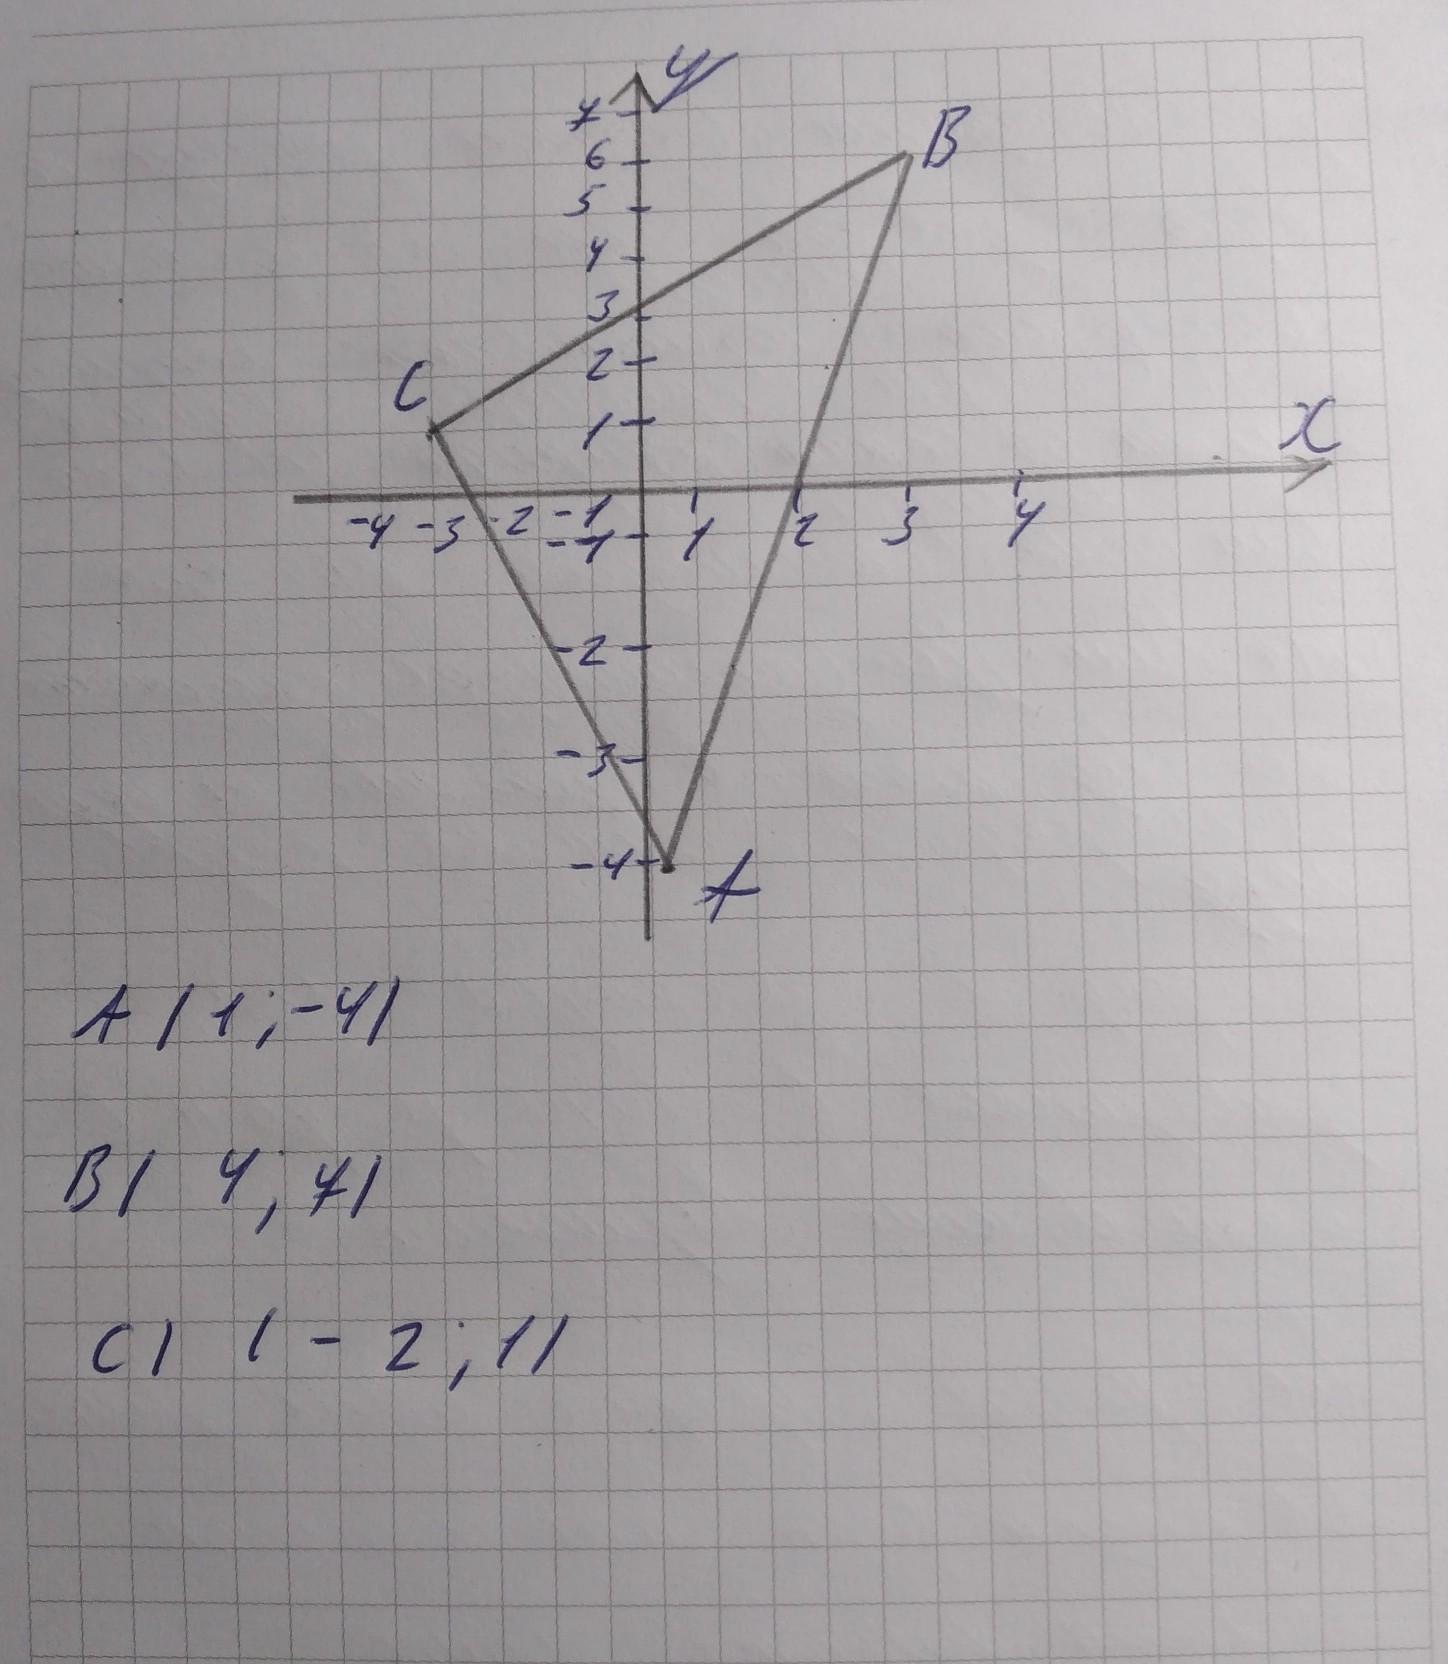 y
7
B
6
5
4
3
C
2
1
x
-4 -3 -2 -1 1 2 3 4
-1
-2
-3
-4
A
A ( 1 ; -4)
B( 4 ; 7)
C) ( - 2 ; 1)